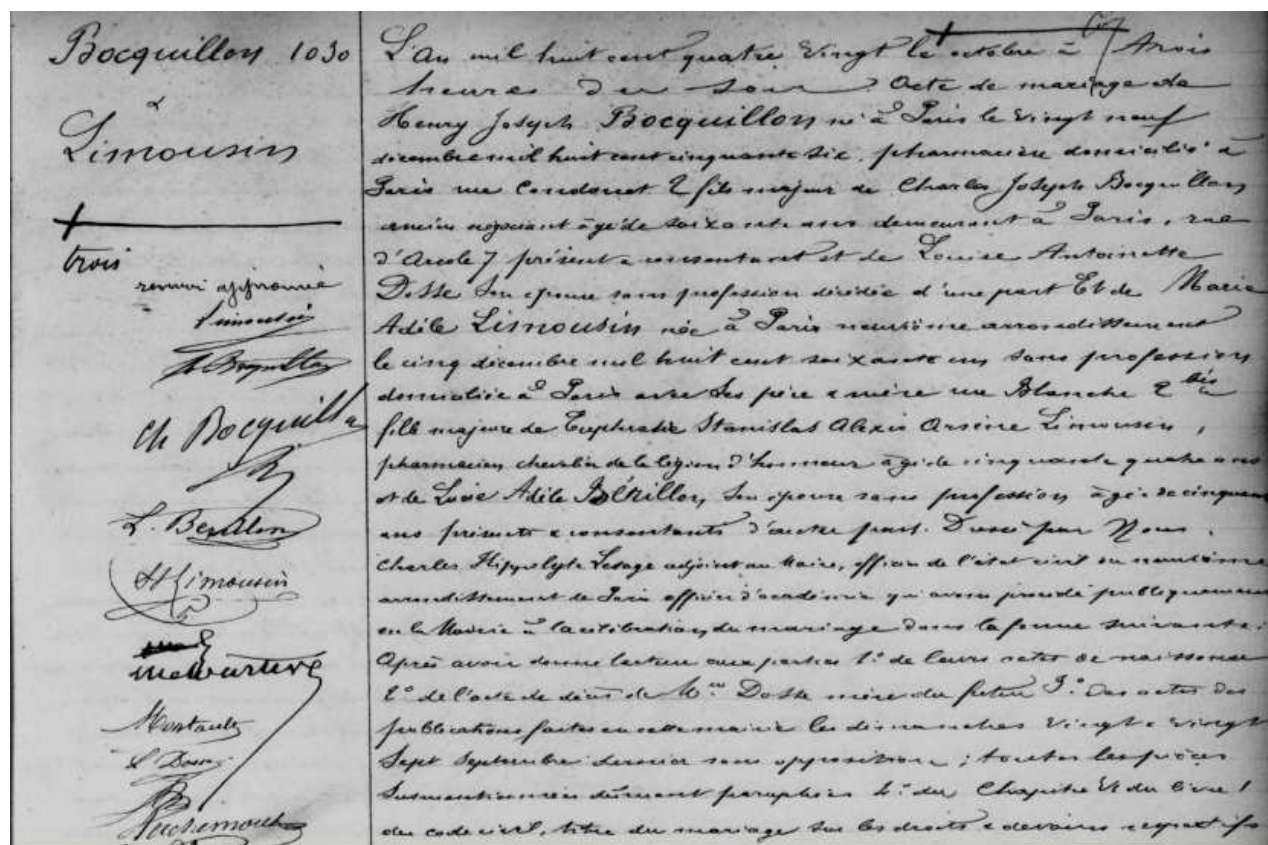 Bocquillon 1030
&
Limousin
trois
renvoi approuvé
Limousin
Ch Bocquillon
L. Berillon
St Limousin
L'an mil huit cent quatre vingt le octobre à trois
heures du soir Acte de mariage de
Henry Joseph Bocquillon né à Paris le vingt neuf
décembre mil huit cent cinquante six, pharmacien domicilié à
Paris rue Condorcet 2 fils majeur de Charles Joseph Bocquillon
ancien négociant âgé de soixante ans demeurant à Paris, rue
d'Arcole 7 présent & consentant et de Louise Antoinette
Dosse son épouse sans profession décédée d'une part Et de Marie
Adèle Limousin née à Paris neuvième arrondissement
le cinq décembre mil huit cent soixante un sans profession
domiciliée à Paris avec ses père & mère rue Blanche 2 bis
fille majeure de Euphrasie Stanislas Alexis Arsène Limousin,
pharmacien chevalier de la légion d'honneur âgé de cinquante quatre ans
et de Adèle Bérillon, son épouse sans profession âgée de cinquante
ans présents & consentants d'autre part. Dressé par Nous
Charles Hippolyte Lesage adjoint au Maire, officier de l'état civil du neuvième
arrondissement de Paris officier d'académie qui avons procédé publiquement
en la Mairie à la célébration du mariage dans la forme suivante:
Après avoir donné lecture aux parties 1° de leurs actes de naissance
2° de l'acte de décès de Mme Dosse mère du futur 3° des actes des
publications faites en cette mairie les dimanches vingt & vingt
sept septembre dernier sans opposition; toutes les pièces
susmentionnées dûment paraphées 4° du Chapitre VI du livre 1
du code civil, titre du mariage sur les droits & devoirs respectifs